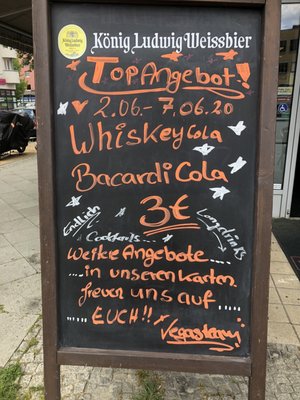 König Ludwig Weissbier
König Ludwig
Weissbier
TopAngebot!
2.06.-7.06.20
WhiskeyCola
Bacardi Cola
3€
Endlich
Cocktails....
Longdrinks
weitere Angebote......
....in unseren Karten.
freuen uns auf
....EUCH!!